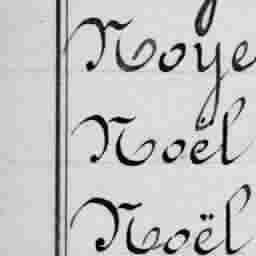 Noye
Noël
Noël